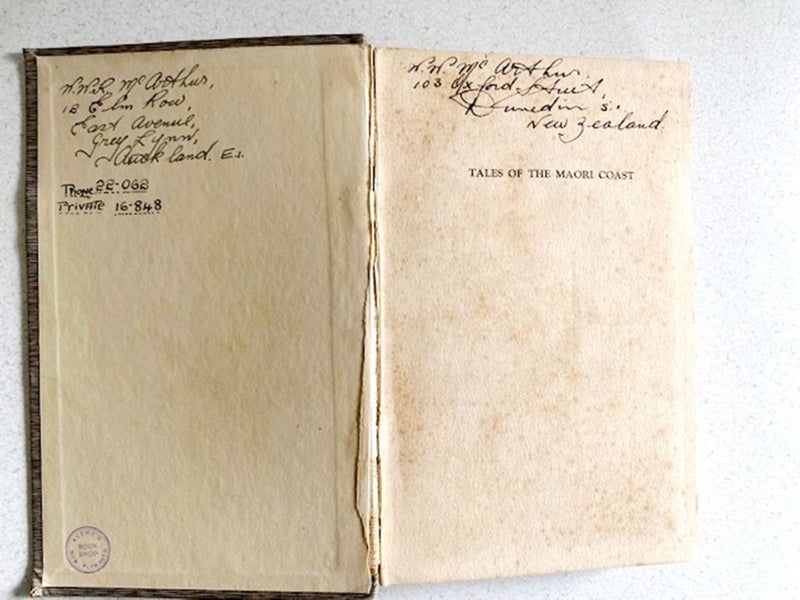 W.W.R. McArthur,
12 Elm Row,
East Avenue,
Grey Lynn,
Auckland. E.1.
Phone 22-062
Private 16-848
BOOK
SHOP
NEW PLYMOUTH
W.W. McArthur.
103 Oxford Street,
Dunedin S.,
New Zealand.
TALES OF THE MAORI COAST